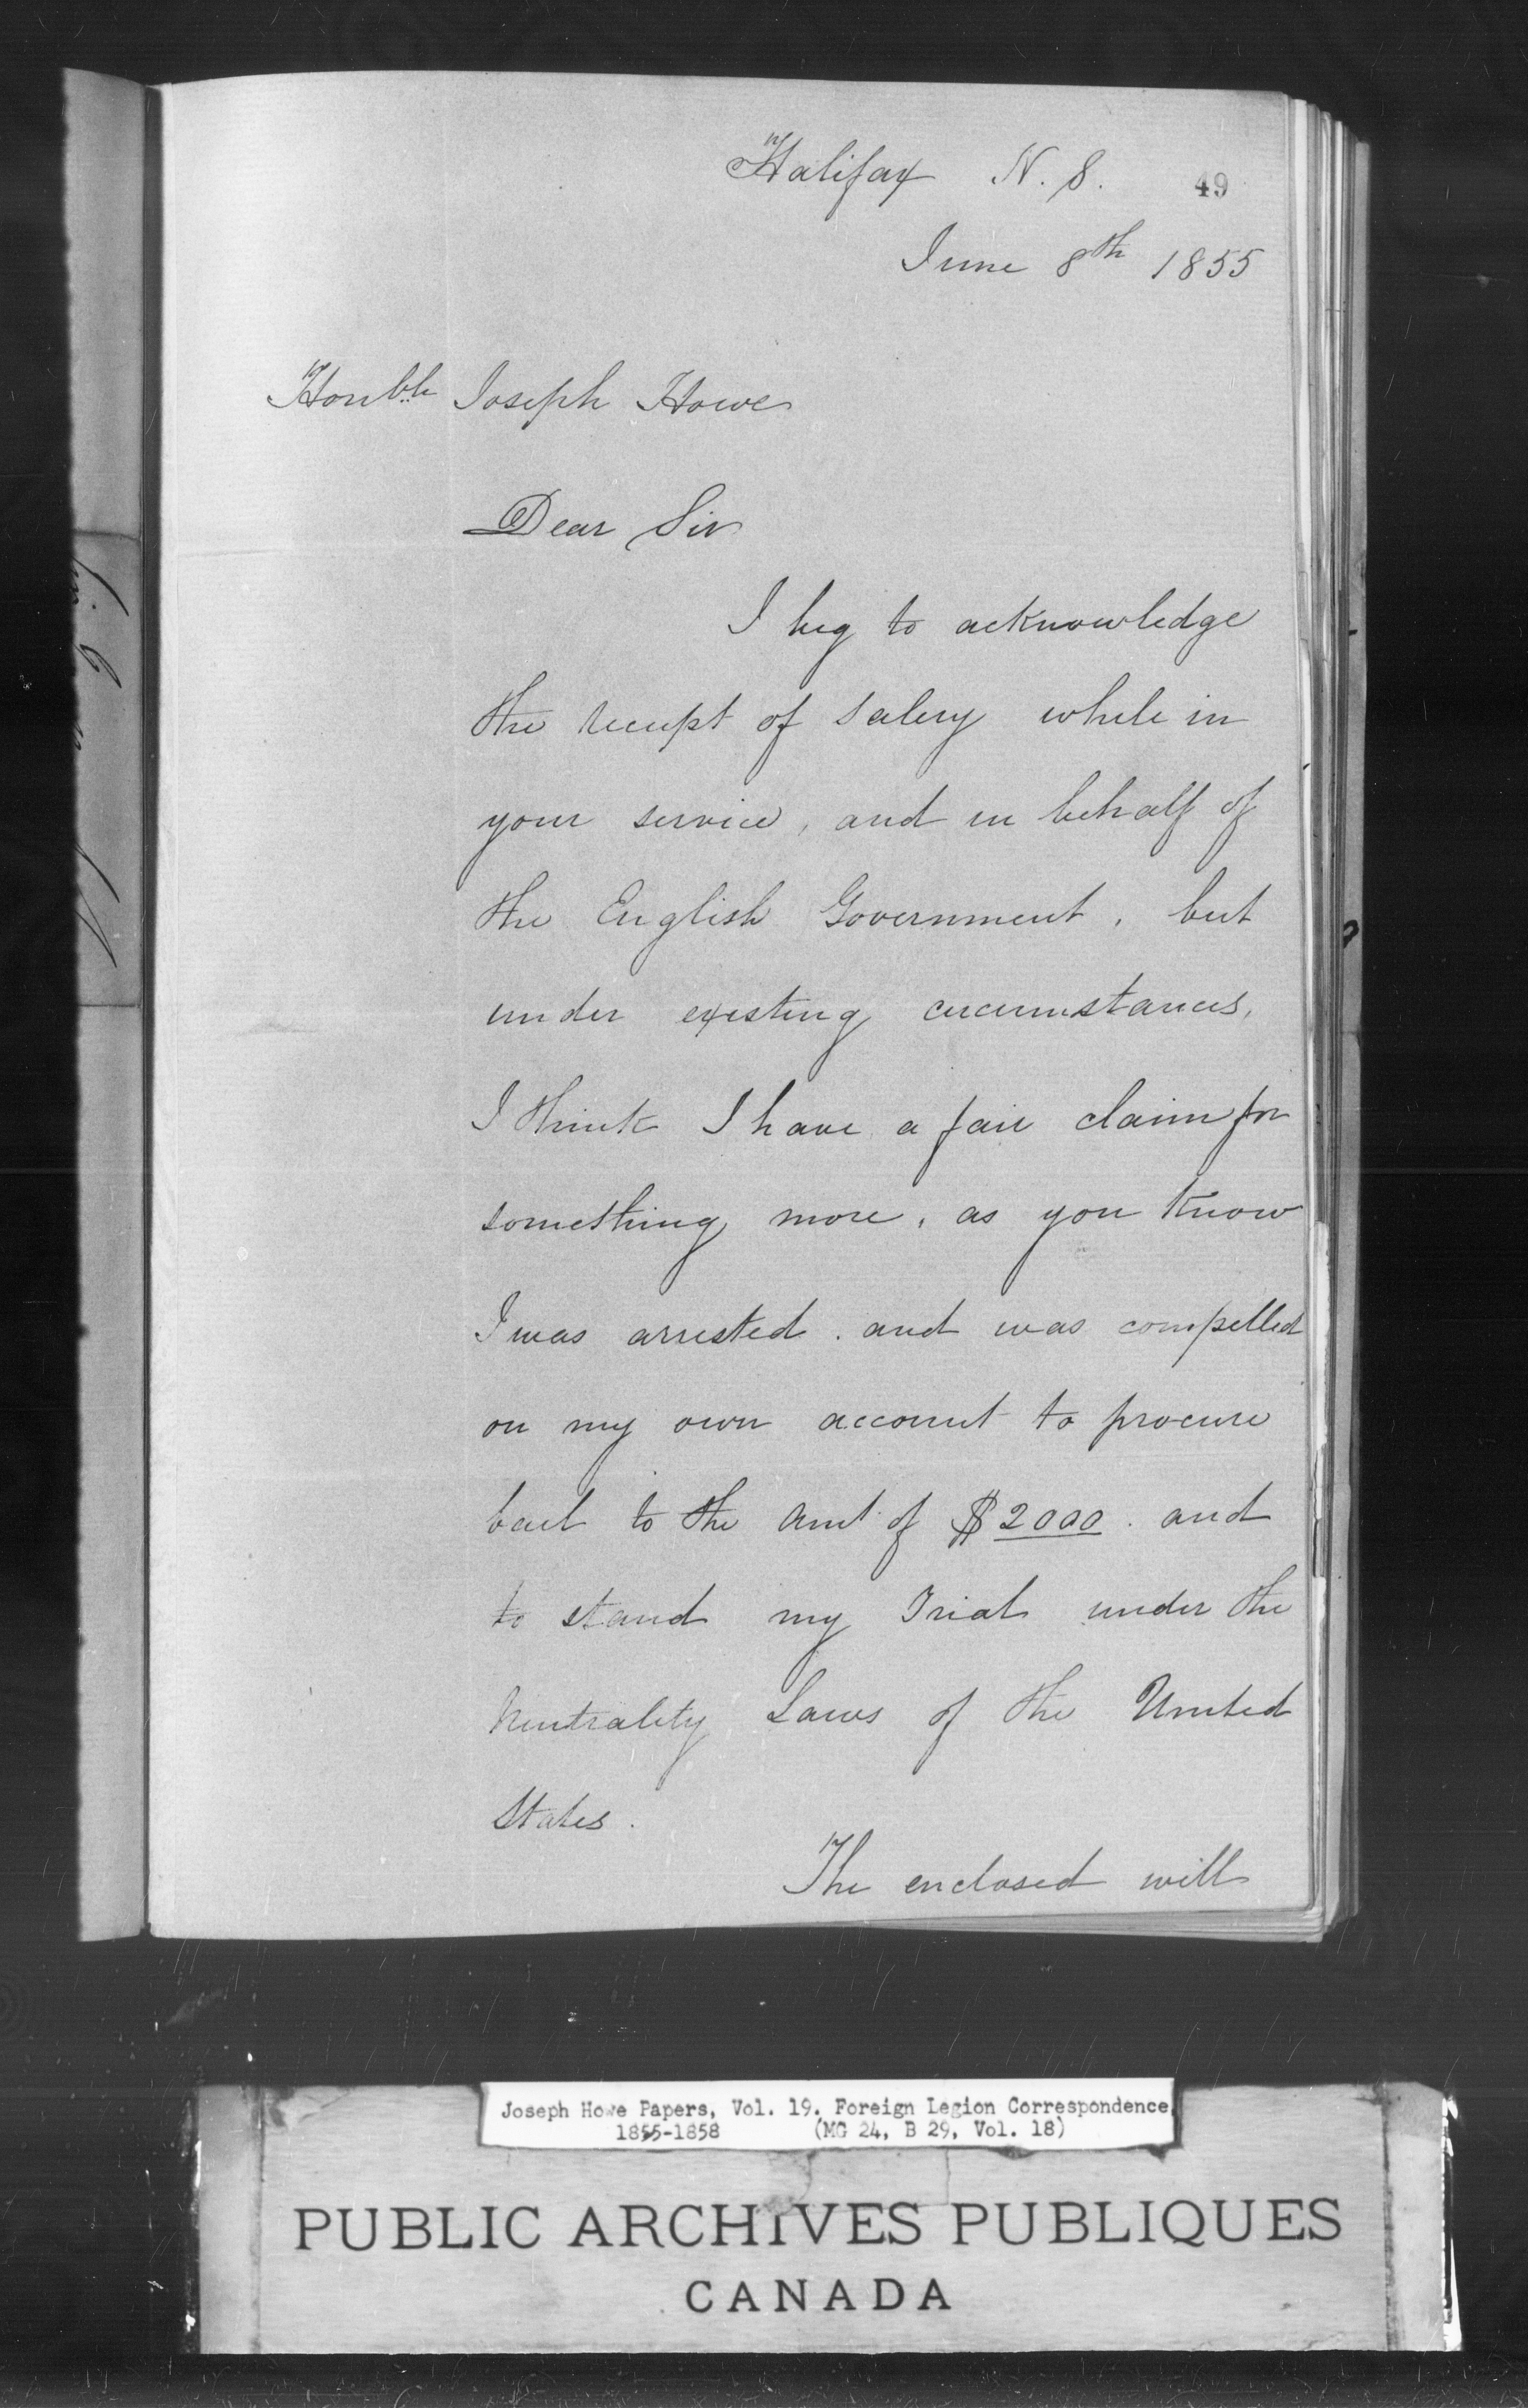 Halifax N. S. 49
June 8th 1855
Honble Joseph Howe
Dear Sir
I beg to acknowledge
the receipt of salery while in
your service, and in behalf of
the English Government, but
under existing circumstances,
I think I have a fair claim for
something more, as you know
I was arrested. and was compelled
on my own account to procure
bail to the Amt of $2000. and
to stand my Trial under the
Neutrality Laws of the United
States.
The enclosed will
Joseph Howe Papers, Vol. 19. Foreign Legion Correspondence,
1855-1858 (MG 24, B 29, Vol. 18)
PUBLIC ARCHIVES PUBLIQUES
CANADA